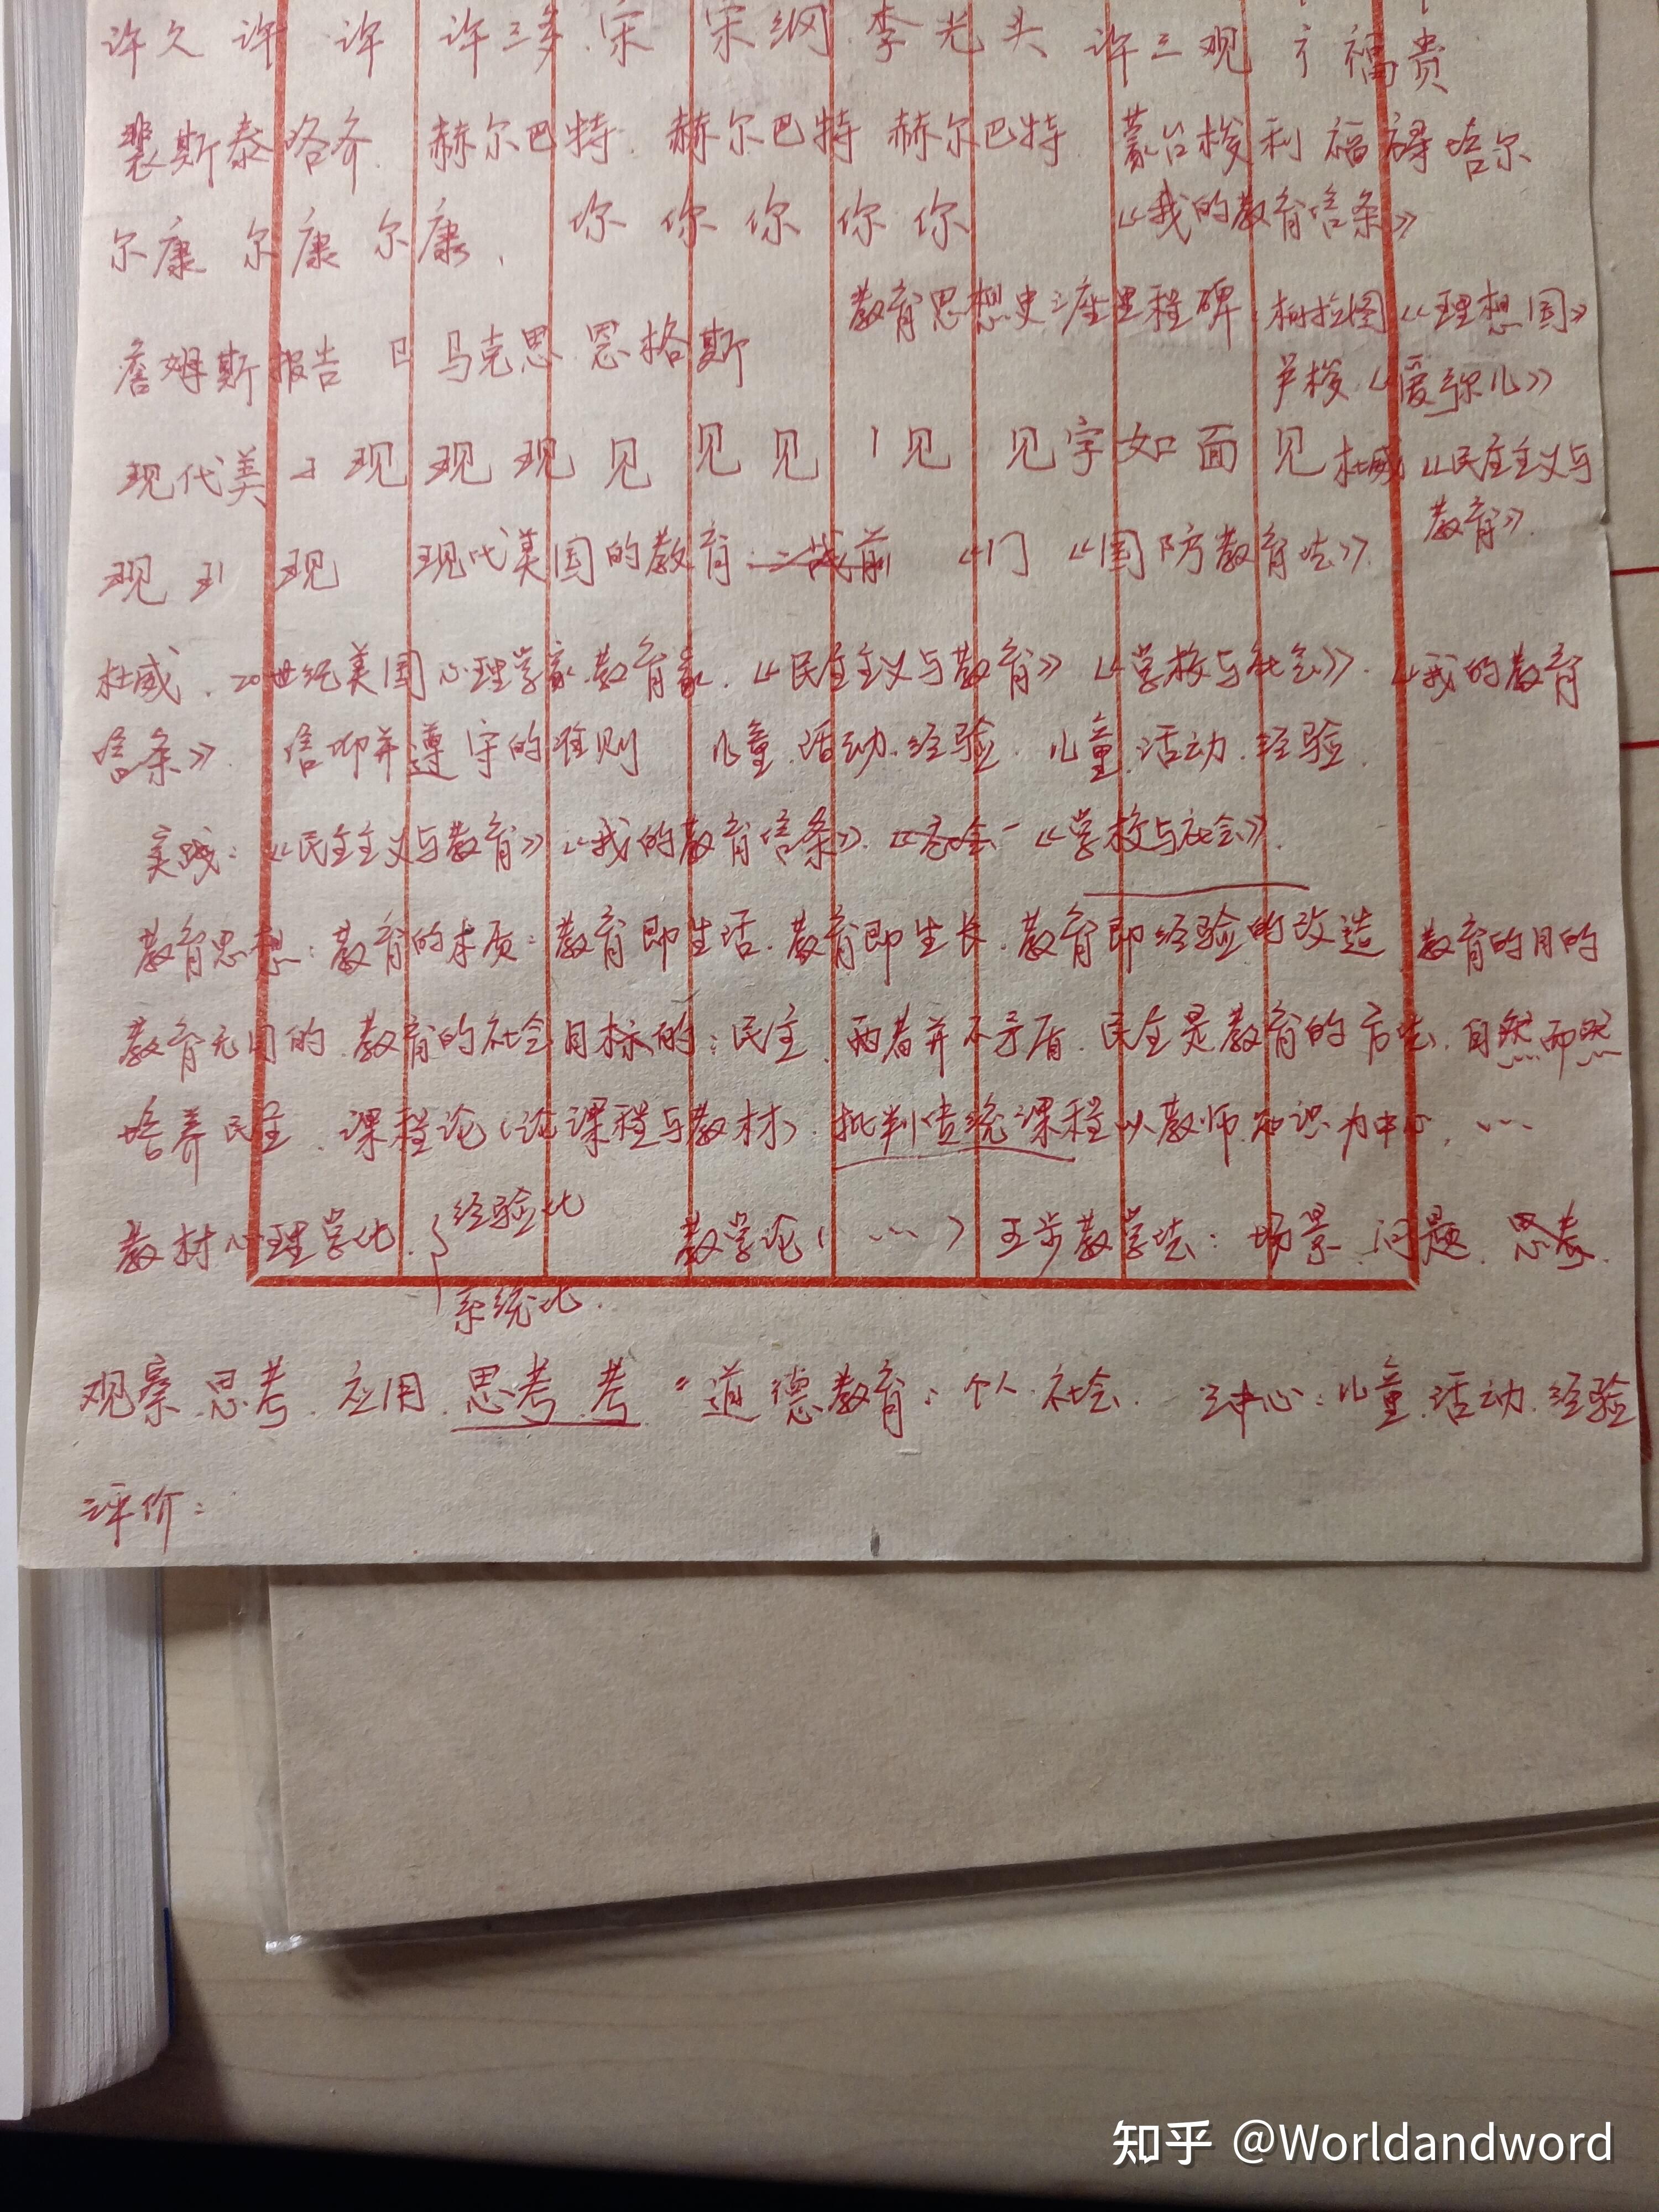 许久 许 许 许三多 宋 宋纲 李光头 许三观 福贵
裴斯泰洛齐 赫尔巴特 赫尔巴特 赫尔巴特 蒙台梭利 福禄培尔
尔康 尔康 尔康 你 你 你 你 你 《我的教育信条》
教育思想史三座里程碑: 柏拉图《理想国》
詹姆斯报告 马克思 恩格斯
卢梭《爱弥儿》
现代美 现 现 现 见 见 见 见 见字如面 见
杜威《民主主义与
教育》
现 现 现代美国的教育:二战前 《国防教育法》
杜威 20世纪美国心理学家 教育家 《民主主义与教育》《学校与社会》《我的教育
信条》 信仰并遵守的准则 儿童 活动 经验 儿童 活动 经验
实践:《民主主义与教育》《我的教育信条》 《学校与社会》
教育思想:教育的本质:教育即生活 教育即生长 教育即经验的改造 教育的目的
教育无目的 教育的社会目标的:民主 两者并不矛盾 民主是教育的方法 自然而然
培养民主 课程论(论课程与教材) 批判传统课程以教师 知识为中心 ……
教材心理学化 经验化 教学论(……)五步教学法:场景 问题 思考
系统化
观察 思考 应用 思考 考 道德教育:个人 社会 三中心:儿童 活动 经验
评价:
知乎 @Worldandword